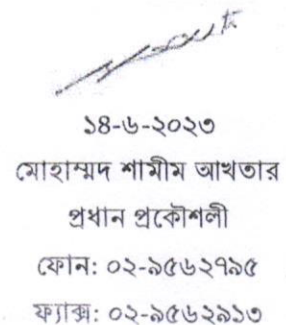 ১৪-৬-২০২৩
মোহাম্মদ শামীম আখতার
প্রধান প্রকৌশলী
ফোন: ০২-৯৫৬২৭৯৫
ফ্যাক্স: ০২-৯৫৬২৯১৩